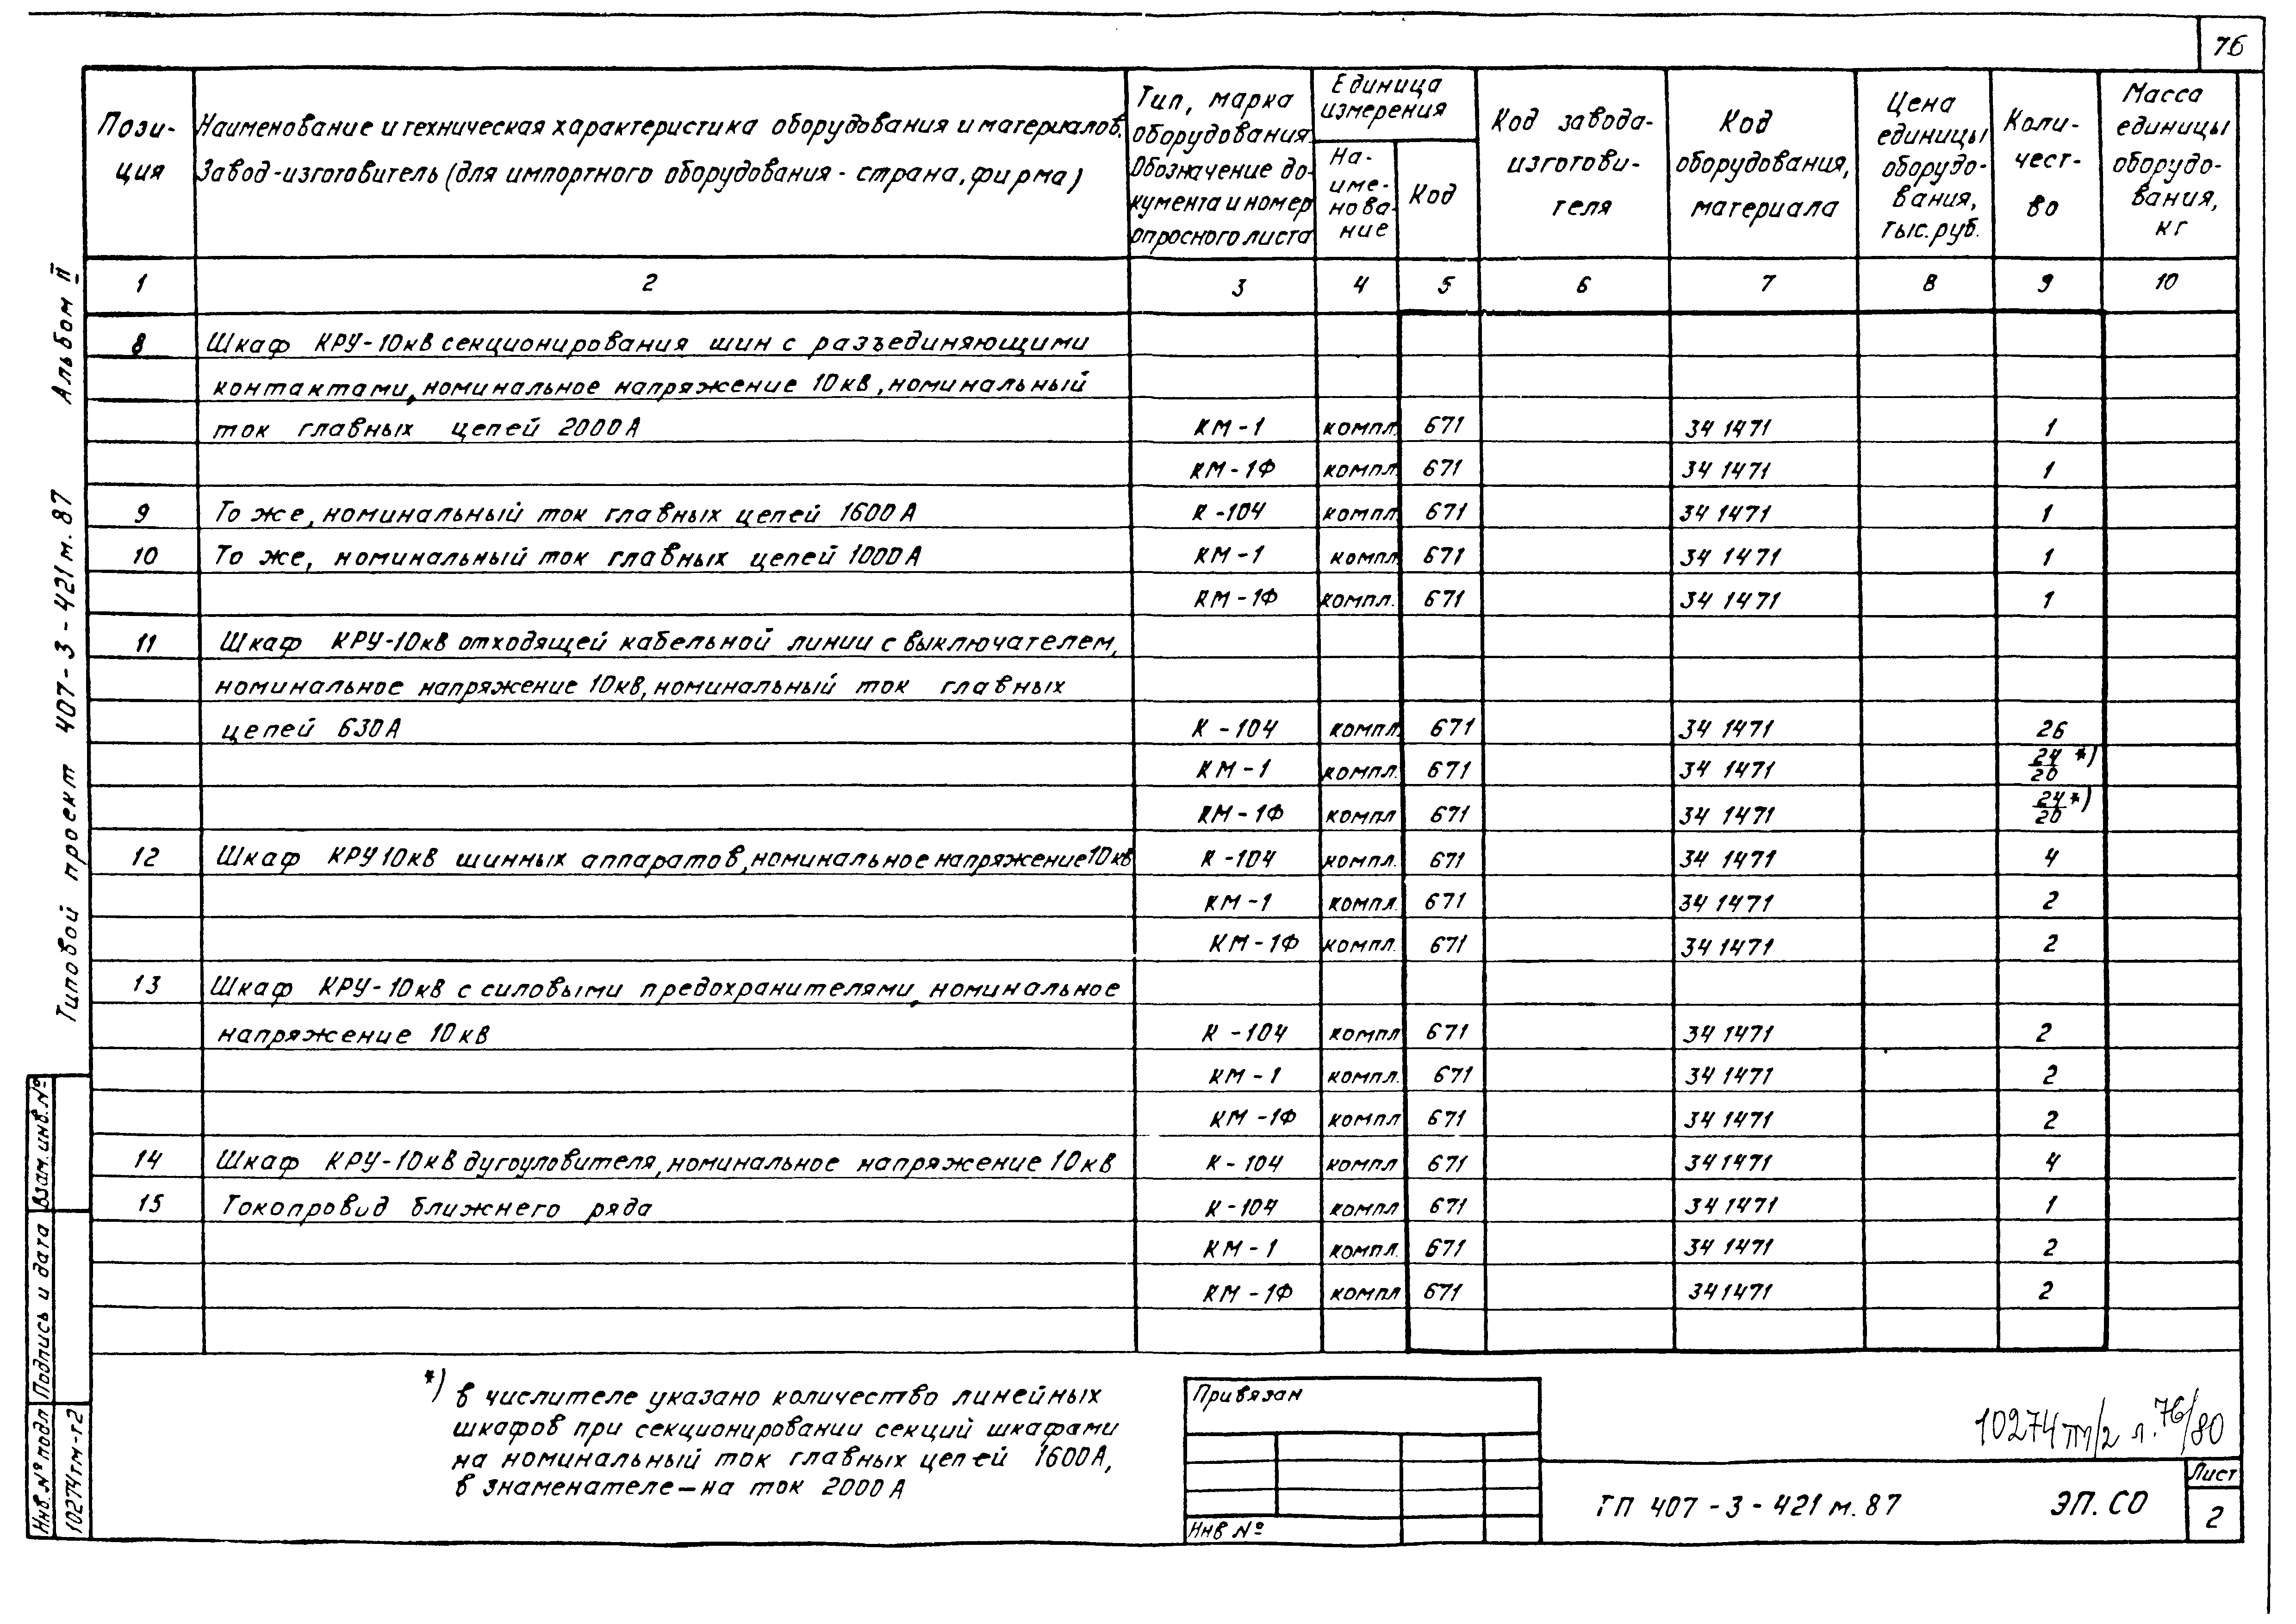 76
Пози-
ция
Наименование и техническая характеристика оборудования и материалов.
Завод-изготовитель (для импортного оборудования - страна, фирма)
Тип, марка
оборудования.
Обозначение до-
кумента и номер
опросного листа
Единица
измерения
На-
име-
нова-
ние
Код
Код завода-
изготови-
теля
Код
оборудования,
материала
Цена
единицы
оборудо-
вания,
тыс. руб.
Коли-
чест-
во
Масса
единицы
оборудо-
вания,
кг
1 2 3 4 5 6 7 8 9 10
8 Шкаф КРУ-10кВ секционирования шин с разъединяющими
контактами, номинальное напряжение 10кВ, номинальный
ток главных цепей 2000А КМ-1 компл. 671 34 1471 1
КМ-1Ф компл 671 34 1471 1
9 То же, номинальный ток главных цепей 1600А К-104 компл 671 34 1471 1
10 То же, номинальный ток главных цепей 1000А КМ-1 компл 671 34 1471 1
КМ-1Ф компл. 671 34 1471 1
11 Шкаф КРУ-10кВ отходящей кабельной линии с выключателем,
номинальное напряжение 10кВ, номинальный ток главных
цепей 630А К-104 компл. 671 34 1471 26
КМ-1 компл. 671 34 1471 24/20 *)
КМ-1Ф компл 671 34 1471 24/20 *)
12 Шкаф КРУ 10кВ шинных аппаратов, номинальное напряжение 10кВ К-104 компл. 671 34 1471 4
КМ-1 компл. 671 34 1471 2
КМ-1Ф компл. 671 34 1471 2
13 Шкаф КРУ-10кВ с силовыми предохранителями, номинальное
напряжение 10кВ К-104 компл 671 34 1471 2
КМ-1 компл. 671 34 1471 2
КМ-1Ф компл 671 34 1471 2
14 Шкаф КРУ-10кВ дугоуловителя, номинальное напряжение 10кВ К-104 компл 671 34 1471 4
15 Токопровод ближнего ряда К-104 компл 671 34 1471 1
КМ-1 компл. 671 34 1471 2
КМ-1Ф компл 671 34 1471 2
*) в числителе указано количество линейных
шкафов при секционировании секций шкафами
на номинальный ток главных цепей 1600А,
в знаменателе - на ток 2000А
Привязан
Инв №
10274тм/2 л. 76/80
ТП 407-3-421м.87 ЭП.СО
Лист
2
Типовой проект 407-3-421м.87 Альбом II
Взам. инв. №
Подпись и дата
Инв. № подл
10274тм-т2